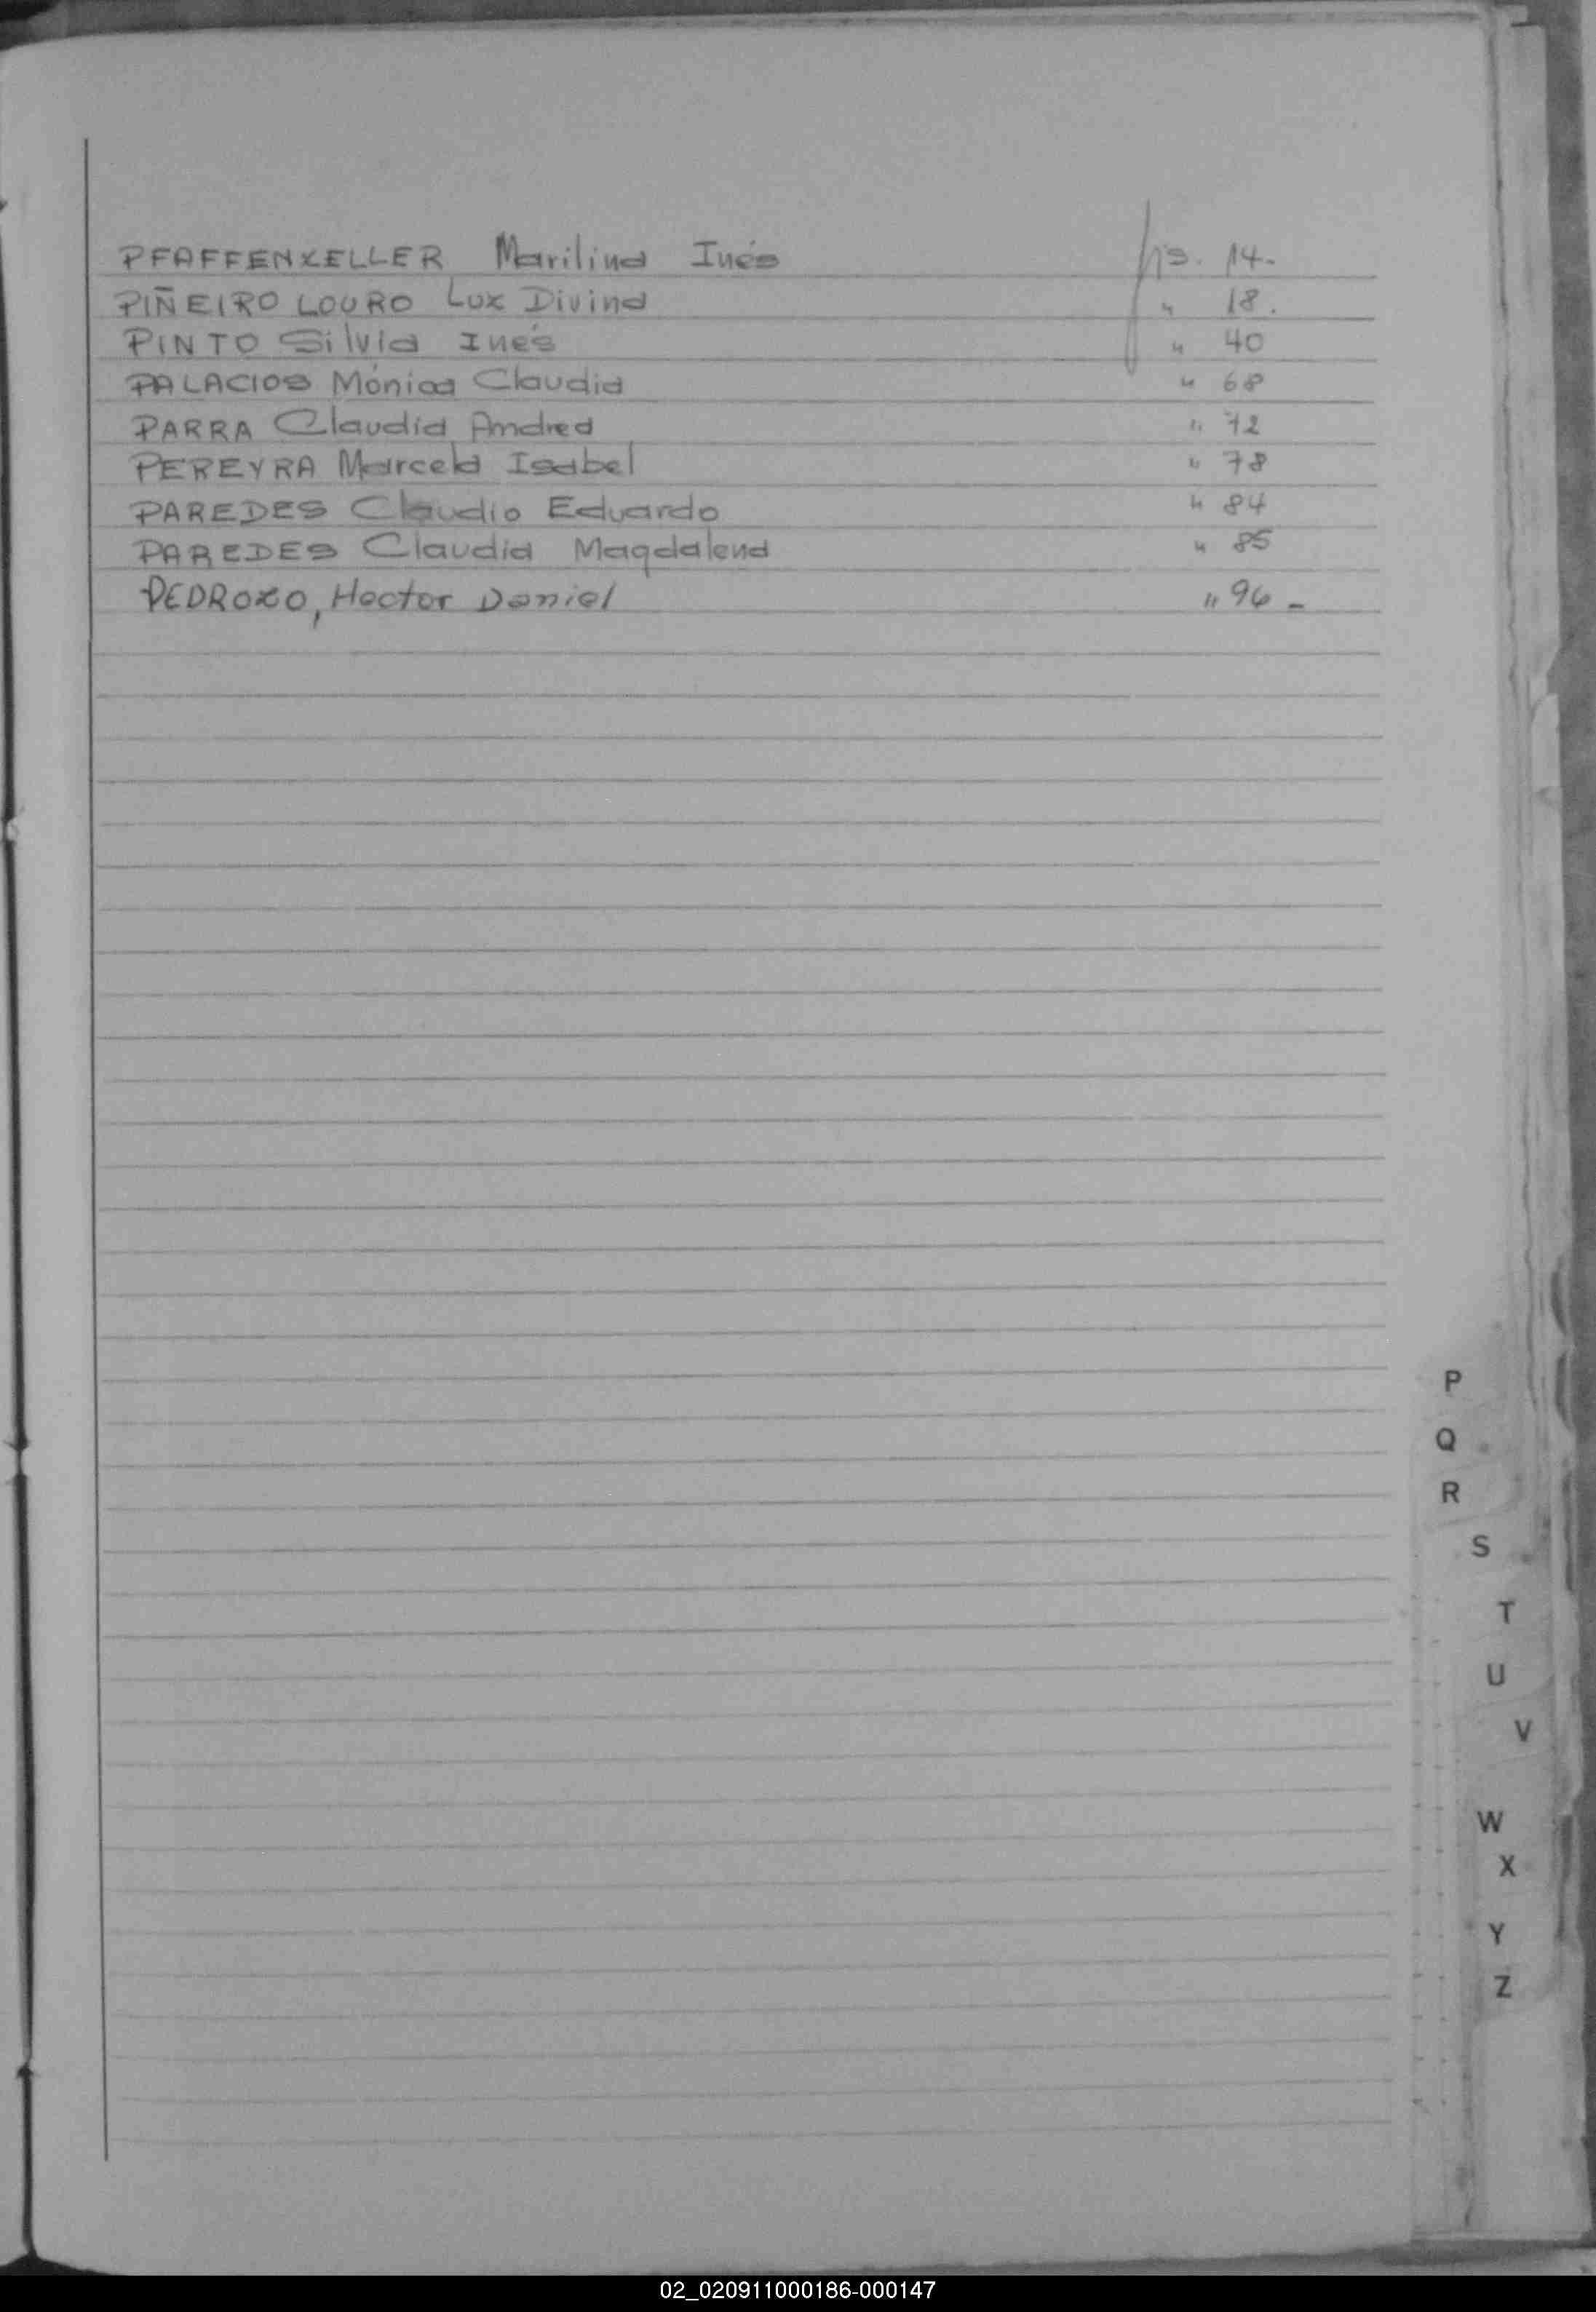 PFAFFENZELLER Marilina Inés fjs. 14.
PIÑEIRO LOURO Lux Divina " 18.
PINTO Silvia Inés " 40
PALACIOS Mónica Claudia " 68
PARRA Claudia Andrea " 72
PEREYRA Marcela Isabel " 78
PAREDES Claudio Eduardo " 84
PAREDES Claudia Magdalena " 85
PEDROZO, Hector Daniel " 96 -
P
Q
R
S
T
U
V
W
X
Y
Z
02_020911000186-000147